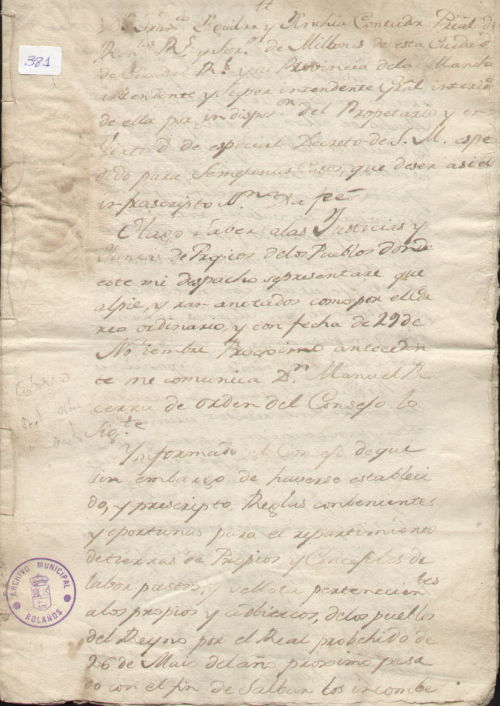 381
Aguilar y Anchia Contador Prãl de
Rtas Rs y Serv.l de Millones de esta Ciudad
de Ciudad Rl y su Provincia de la Mancha
intendente y Super intendente Gãl interino
de ella por indispon del Propetario, y en
virtud de especial Decreto de S. M. espe
dido para semejantes casos, que de ser asi el
infrascripto Doy fee
Hago saver a las Justicias y
Juntas de Propios de los Pueblos donde
este mi despacho se presentare que
al pie, y ran anotados como por el Co
rreo ordinario, y con fecha de 29 de
Nobiembre Proximo anteceden
te me comunica Dn Manuel Be
cerra de orden del Consejo lo
Sigte
Ynformado el Consejo de que
sin embargo de haverse estableci
do, y prescripto Reglas conbenientes
y oportunas para el repartimiento
de tierras de Propios y Concejiles de
labor pastos, y vellota pertenecientes
a los propios y advitrios, de los pueblos
del Reyno por el Real probehido de
26 de Maio del año proximo pasa
do con el fin de salbar los incombe
ARCHIVO MUNICIPAL
BOLAÑOS